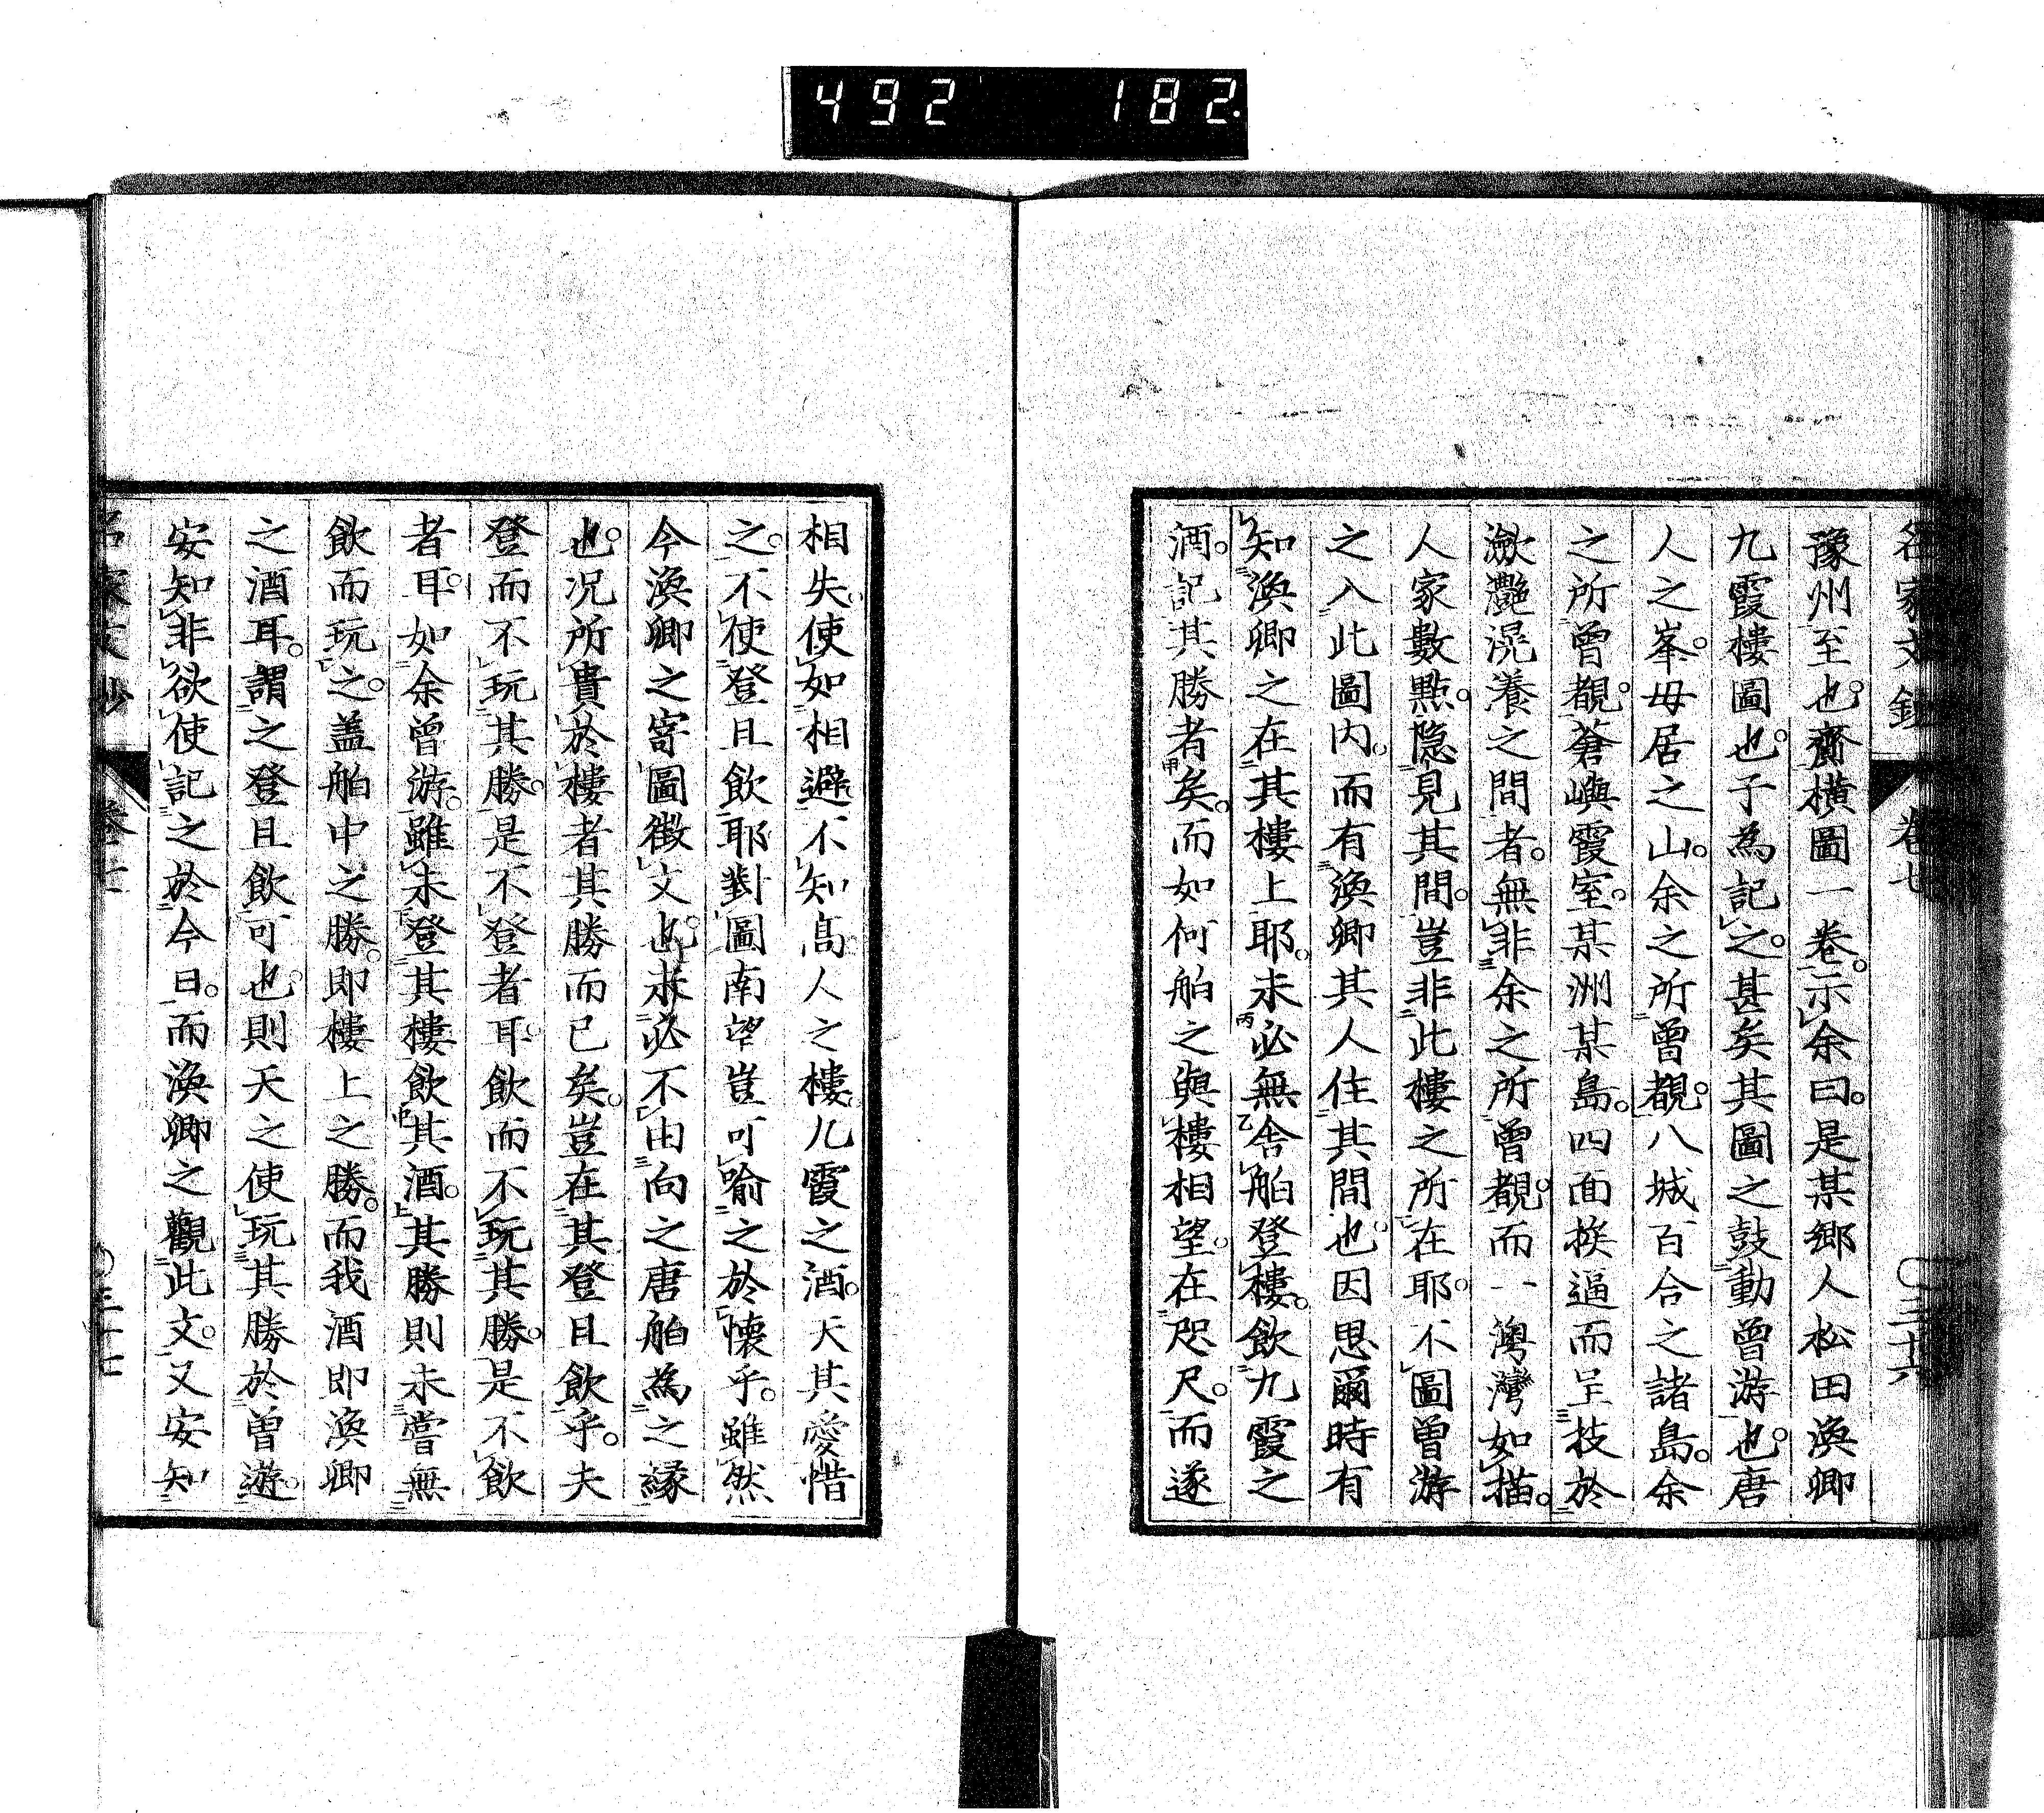 492 182.
名家文鈔 卷七 〇三十六
豫州至也。齎橫圖一卷。示余曰。是某鄉人松田渙卿
九霞樓圖也。子為記之。甚矣其圖之鼓動曾游也。唐
人之峯。毋居之山。余之所曾覩。八城百合之諸島。余
之所曾覩。蒼嶼霞室。某洲某島。四面挨逼而呈技於
瀲灩滉瀁之間者。無非余之所曾覩。而一灣灣如描。
人家數點。隱見其間。豈非此樓之所在耶。不圖曾游
之入此圖内。而有渙卿其人住其間也。因思爾時有
知渙卿之在其樓上耶。未必無舍舶登樓。飲九霞之
酒。記其勝者矣。而如何舶之與樓相望。在咫尺。而遂
相失。使如相避。不知髙人之樓。九霞之酒。天其愛惜
之。不使登且飲耶。對圖南望。豈可喻之於懷乎。雖然
今渙卿之寄圖徵文也。未必不由向之唐舶為之緣
也。況所貴於樓者其勝而已矣。豈在其登且飲乎。夫
登而不玩其勝。是不登者耳。飲而不玩其勝。是不飲
者耳。如余曾游。雖未登其樓飲其酒。其勝則未嘗無
飲而玩之。盖舶中之勝。即樓上之勝。而我酒即渙卿
之酒耳。謂之登且飲可也。則天之使玩其勝於曾遊。
安知非欲使記之於今日。而渙卿之觀此文。又安知
名家文鈔 卷七 〇三十七